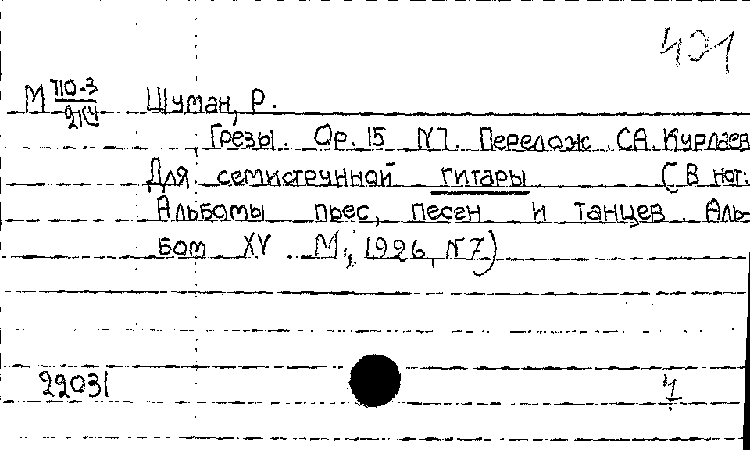 401
М П0-3/214 Шуман, Р.
Грезы. Op. 15 N7. Перелож. С.А. Курлаев
Для семиструнной гитары (В нот.
Альбомы пьес, песен и танцев. Аль-
бом XV. М., 1926, N7)
22031